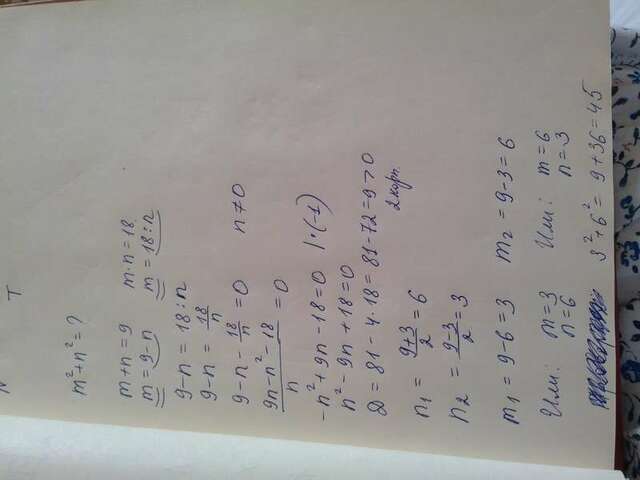 m²+n²=?
m+n=9 m·n=18
m=9-n m=18:n
9-n=18:n
9-n=18/n
9-n-18/n=0 n≠0
(9n-n²-18)/n=0
-n²+9n-18=0 |·(-1)
n²-9n+18=0
D=81-4·18=81-72=9>0
2 корн.
n₁=(9+3)/2=6
n₂=(9-3)/2=3
m₁=9-6=3 m₂=9-3=6
Или: m=3 Или: m=6
n=6 n=3
3²+6²=9+36=45